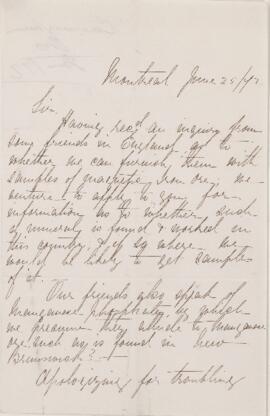 Montreal June 25/72
Sir.
Having recd an inquiry from
some friends in England as to
whether we can furnish them with
samples of magnetic Iron ore, we
venture to apply to you for
information as to whether such
a mineral is found & worked in
this country, & if so where we
would be likely to get samples
of it.
Our friends also speak of
manganese phosphate, by which
we presume they allude to manganese
ore such as is found in New
Brunswick?
Apologizing for troubling